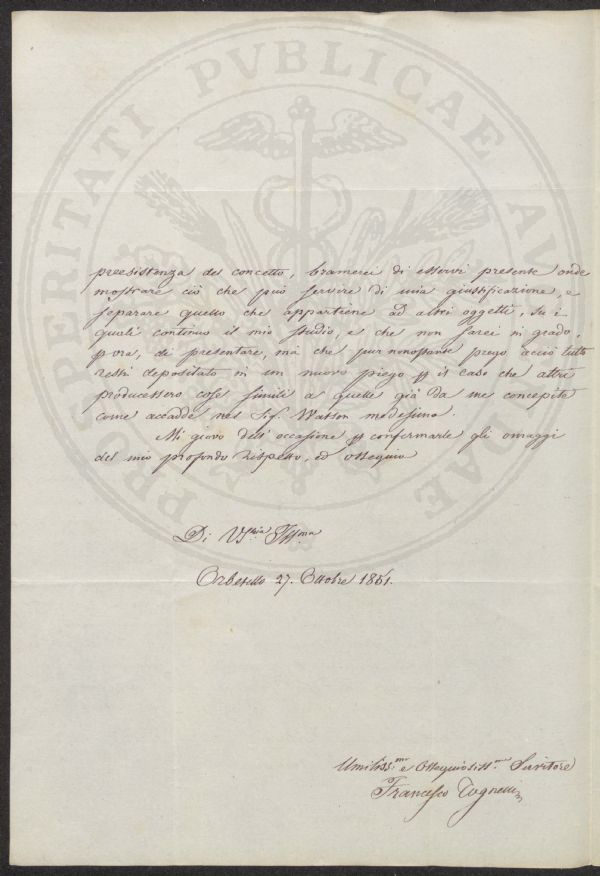 PROSPERITATI PVBLICAE AVGENDAE
preesistenza del concetto, bramerei di esservi presente onde
mostrare ciò che può servire di mia giustificazione, e
separare quello che appartiene ad altri oggetti, su i
quali continuo il mio studio, e che non sarei in grado,
p ora, di presentare, mà che pur nonostante prego acciò tutto
resti depositato in un nuovo piego p il caso che altri
producessero cose simili a quelle già da me concepite
come accadde nel Sig. Watson medesimo.
Mi giovo dell' occasione p confermarle gli omaggi
del mio profondo rispetto, ed ossequio
Di VS.ria Ill.ma
Orbetello 27. Ottobre 1851.
Umiliss.mo e Ossequiosiss.mo Servitore
Francesco Tognelli